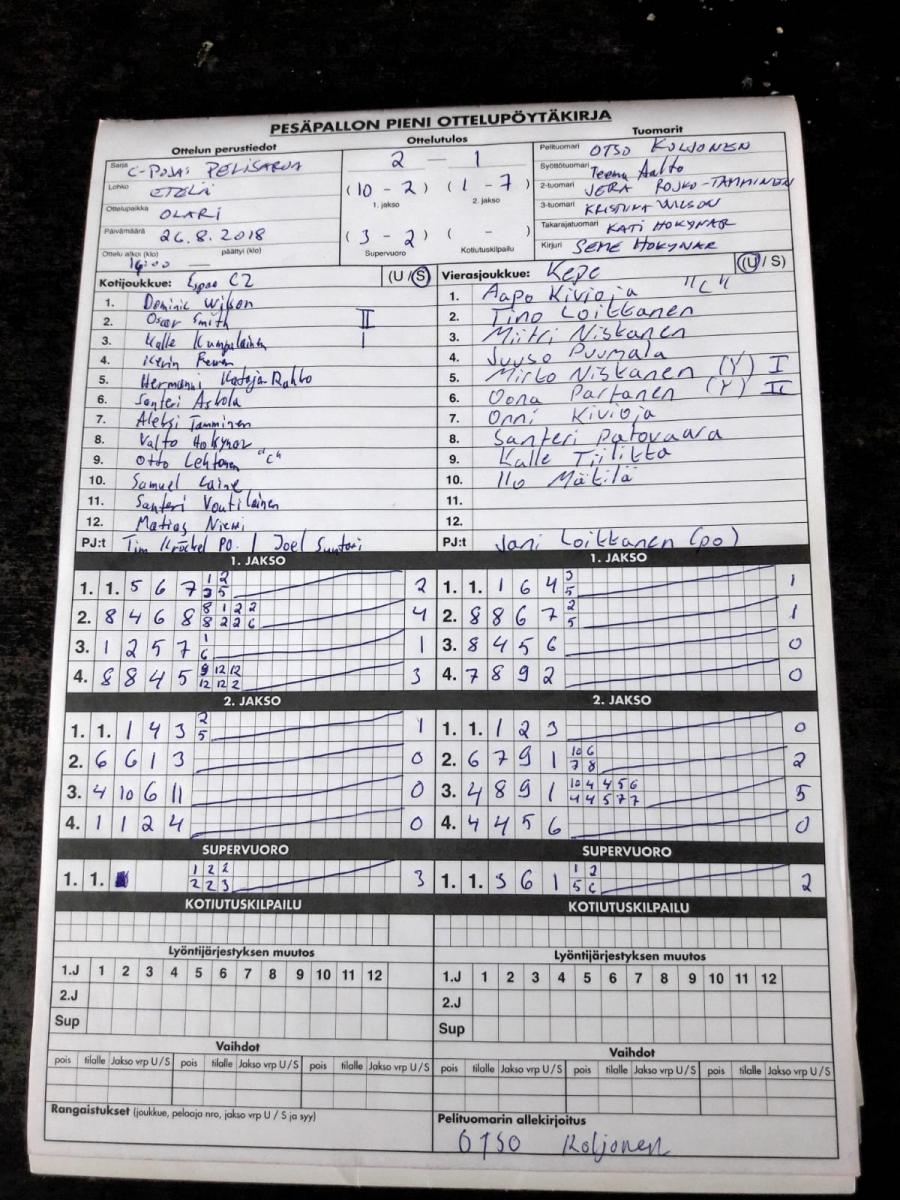 PESÄPALLON PIENI OTTELUPÖYTÄKIRJA
Ottelun perustiedot
Sarja C-POJAT PELISARJA
Lohko ETELÄ
Ottelupaikka OLARI
Päivämäärä 26.8.2018
Ottelu alkoi (klo) päättyi (klo)
14:00 —
Ottelutulos
2 — 1
(10 - 2) (1 - 7)
1. jakso 2. jakso
(3 - 2) ( - )
Supervuoro Kotiutuskilpailu
Tuomarit
Pelituomari OTSO KOLJONEN
Syöttötuomari Teemu Aalto
2-tuomari JERA ROJKO-TAMMINEN
3-tuomari KRISTIINA WILSON
Takarajatuomari KATI HOKYNAR
Kirjuri SEME HOKYNAR
Kotijoukkue: Espoo C2 (U / S)
1. Dominic Wilson
2. Oscar Smith II
3. Kalle Kumpulainen I
4. Kevin
5. Hermanni Kataja-Rahko
6. Santeri Askola
7. Aleksi Tamminen
8. Valto Hokynar
9. Otto Lehtonen "C"
10. Samuel Laine
11. Santeri Voutilainen
12. Matias Niemi
PJ:t Tim Kröckel PO. / Joel Suntari
Vierasjoukkue: Kepe (U / S)
1. Aapo Kivioja "C"
2. Tino Loikkanen
3. Miitri Niskanen
4. Juuso Puumala
5. Mirko Niskanen (Y) I
6. Oona Partanen (Y) II
7. Onni Kivioja
8. Santeri Patovaara
9. Kalle Tiilikka
10. Ilo Mätilä
11.
12.
PJ:t Jani Loikkanen (po)
1. JAKSO
1. 1. 5 6 7 1 2 2
3 5
2. 8 4 6 8 8 1 2 2 4
8 2 2 6
3. 1 2 5 7 1 1
6
4. 8 8 4 5 9 12 12 3
12 12 2
1. JAKSO
1. 1. 1 6 4 3 1
5
2. 8 8 6 7 2 1
5
3. 8 4 5 6 0
4. 7 8 9 2 0
2. JAKSO
1. 1. 1 4 3 2 1
5
2. 6 6 1 3 0
3. 4 10 6 11 0
4. 1 1 2 4 0
2. JAKSO
1. 1. 1 2 3 0
2. 6 7 9 1 10 6 2
7 8
3. 4 8 9 1 10 4 4 5 6 5
4 4 5 7 7
4. 4 4 5 6 0
SUPERVUORO
1. 1. 1 2 2 3
2 2 3
SUPERVUORO
1. 1. 3 6 1 1 2 2
5 6
KOTIUTUSKILPAILU
KOTIUTUSKILPAILU
Lyöntijärjestyksen muutos
1.J 1 2 3 4 5 6 7 8 9 10 11 12
2.J
Sup
Lyöntijärjestyksen muutos
1.J 1 2 3 4 5 6 7 8 9 10 11 12
2.J
Sup
Vaihdot
pois tilalle Jakso vrp U / S pois tilalle Jakso vrp U / S pois tilalle Jakso vrp U / S
Vaihdot
pois tilalle Jakso vrp U / S pois tilalle Jakso vrp U / S pois tilalle Jakso vrp U / S
Rangaistukset (joukkue, pelaaja nro, jakso vrp U / S ja syy)
Pelituomarin allekirjoitus
OTSO Koljonen